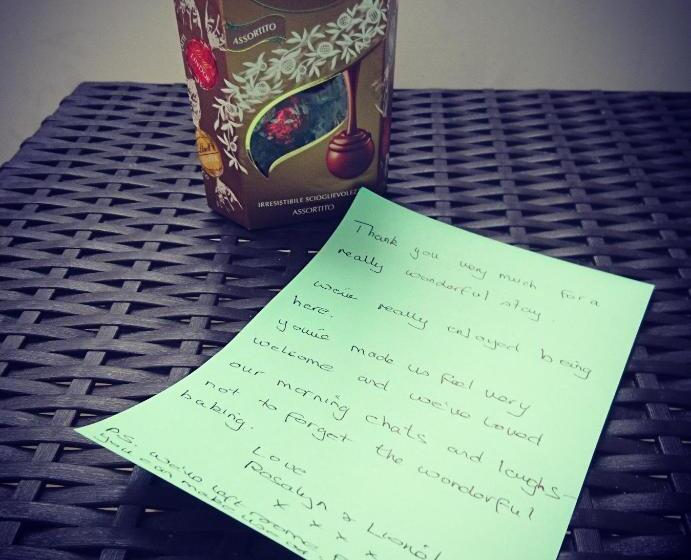 ASSORTITO
LINDOR
IRRESISTIBILE SCIOGLIEVOLEZZA
ASSORTITO
Thank you very much for a
really wonderful stay.
we've really enjoyed being
here.
you've made us feel very
welcome and we've loved
our morning chats and laughs -
not to forget the wonderful
baking.
Love
Rosalyn & Lionel
x x x x
PS. we've left some
you can make